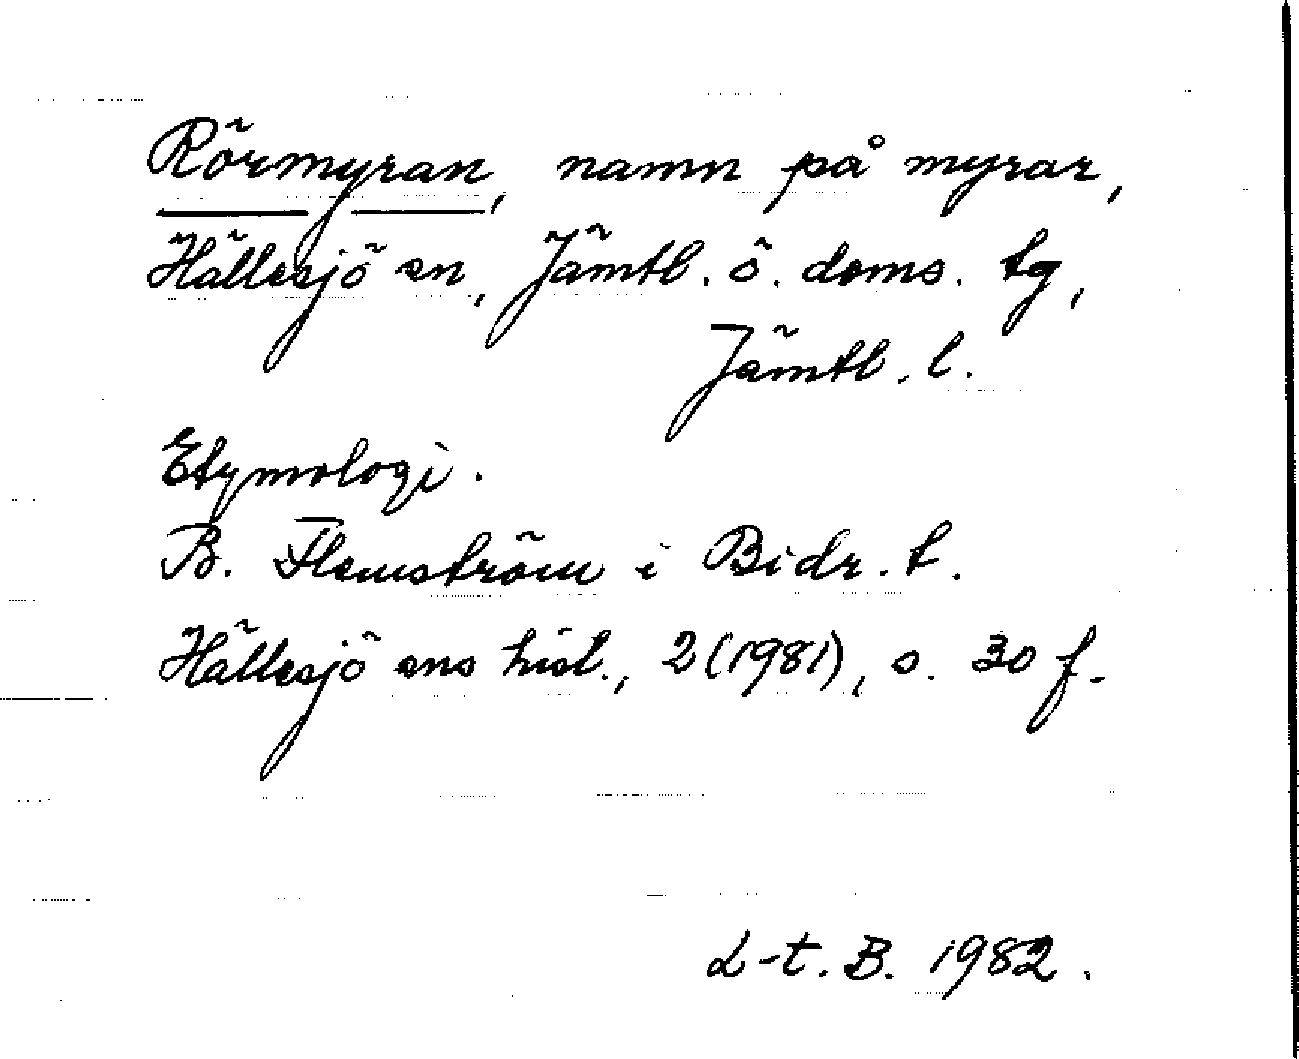 Rörmyran, namn på myrar,
Hällesjö sn, Jämtl. ö. doms. tg,
Jämtl. l.
Etymologi.
B. Flemström i Bidr. t.
Hällesjö sns hist., 2 (1981), s. 30 f.
L-t. B. 1982.